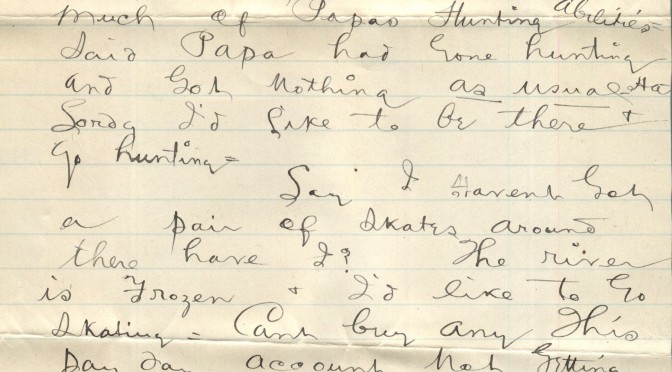 Much of Papas Hunting Abilities =
Said Papa had Gone hunting
and Got Nothing as usual Ha
I'd Like to be there +
go hunting =
Say I Havent Got
a pair of skates around
there have I? The river
is Frozen + I'd like to Go
Skating = Cant buy any This
Pay day account Not Getting